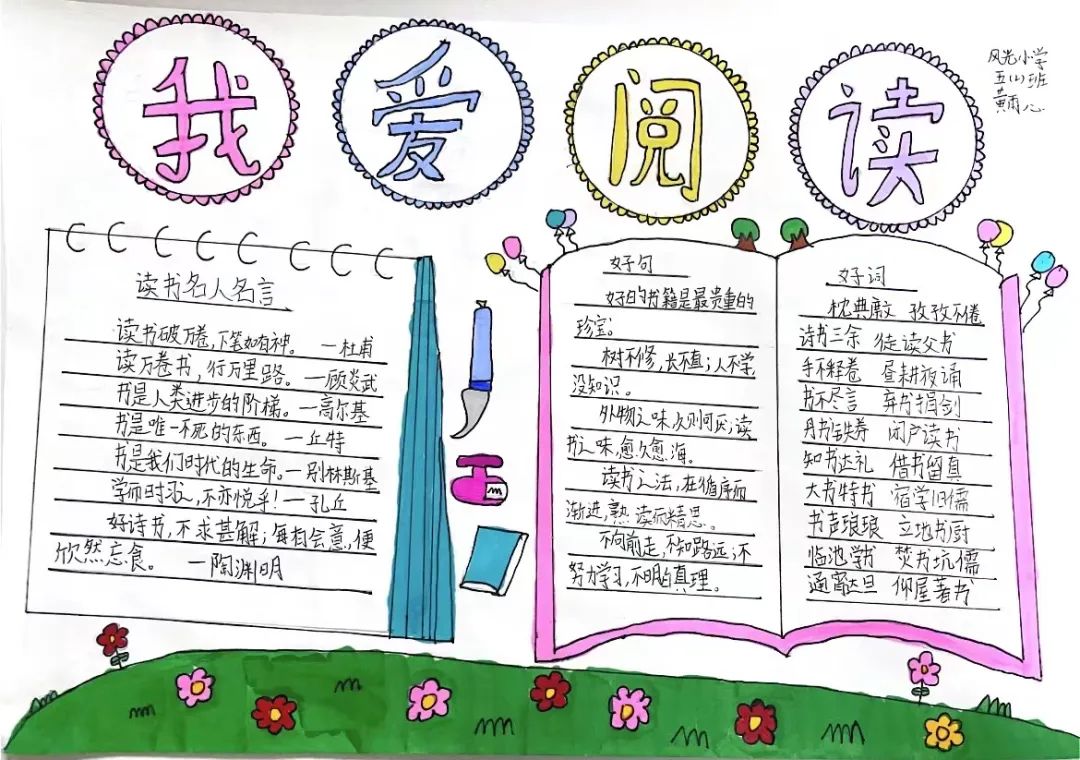 我爱阅读
风光小学
五(1)班
黄雨心
读书名人名言
读书破万卷，下笔如有神。 —杜甫
读万卷书，行万里路。—顾炎武
书是人类进步的阶梯。—高尔基
书是唯一不死的东西。 —丘特
书是我们时代的生命。—别林斯基
学而时习之，不亦悦乎！—孔丘
好诗书，不求甚解；每有会意，便
欣然忘食。 —陶渊明
好句
好的书籍是最贵重的
珍宝。
树不修，长不直；人不学，
没知识。
外物之味，久则可厌；读
书之味，愈久愈海。
读书之法，在循序而
渐进，熟读而精思。
不向前走，不知路远；不
努力学习，不明白真理。
好词
枕典席文 孜孜不倦
诗书三余 徒读父书
手不释卷 昼耕夜诵
书不尽言 弃书捐剑
丹书铁券 闭户读书
知书达礼 借书留真
大书特书 宿学旧儒
书声琅琅 立地书厨
临池学书 焚书坑儒
通宵达旦 仰屋著书